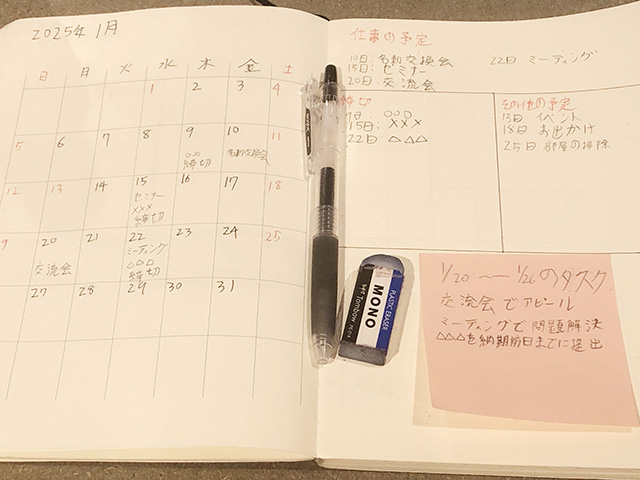 2025年 1月
日 月 火 水 木 金 土
1 2 3 4
5 6 7 8 9 10 11
○○ 名刺交換会
締切
12 13 14 15 16 17 18
セミナー
×××
締切
9 20 21 22 23 24 25
交流会 ミーティング
締切
27 28 29 30 31
仕事の予定
10日:名刺交換会 22日 ミーティング
15日:セミナー
20日:交流会
切
日:○○○
15日:×××
22日 △△△
その他の予定
13日 イベント
18日 お出かけ
25日 部屋の掃除
PLASTIC ERASER
MONO
Tombow
1/20 〜 1/26のタスク
交流会でアピール
ミーティングで問題解決
△△△を納期前日までに提出